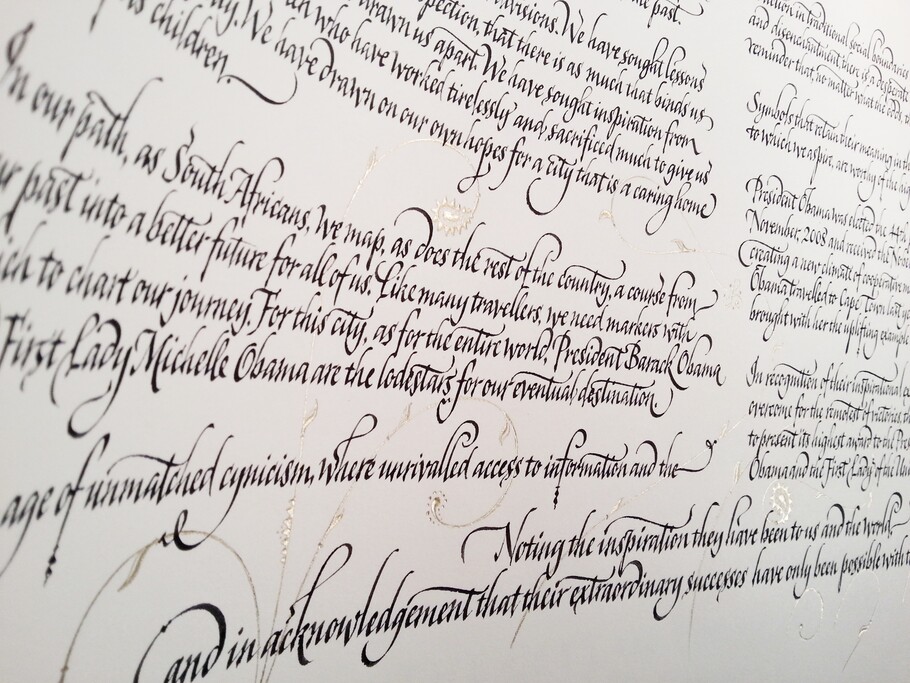 us children.
In our path, as South Africans, we map, as does the rest of the country, a course from
our past into a better future for all of us. Like many travellers, we need markers with
which to chart our journey. For this city, as for the entire world, President Barack Obama
First Lady Michelle Obama are the lodestars for our eventual destination.
age of unmatched cynicism, where unrivalled access to information and the
Noting the inspiration they have been to us and the world,
and in acknowledgement that their extraordinary successes have only been possible with
the past.
divisions. We have sought lessons
drawn us apart. We have sought inspiration from
who have worked tirelessly and sacrificed much to give us
We have drawn on our own hopes for a city that is a caring home
in traditional social boundaries
and disenchantment there is a desperate
reminder that, no matter what the odds,
Symbols that retain their meaning in the
to which we aspire, are worthy of the
President Obama was elected the 44th
November, 2008 and received the
creating a new climate of cooperative
Obama travelled to Cape Town last
brought with her the uplifting example
In recognition of their inspirational
overcome for the remotest of victories,
to present its highest award to the
Obama and the First Lady of the